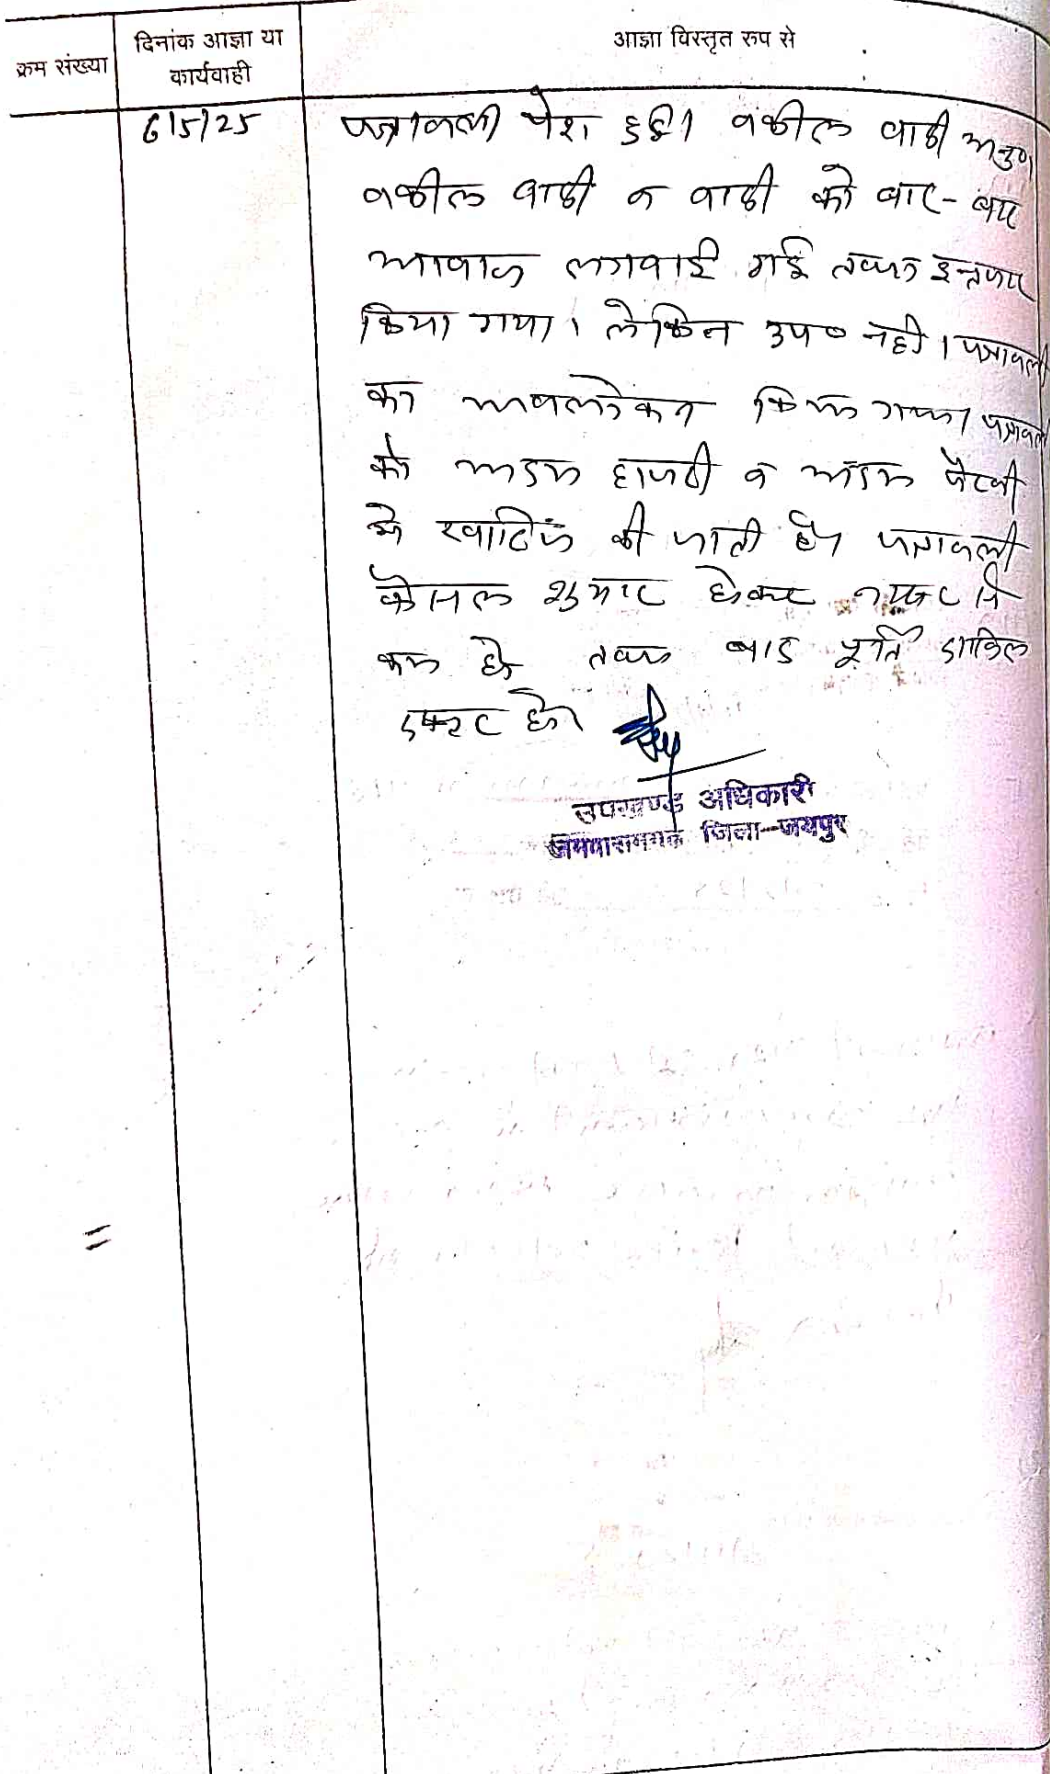 क्रम संख्या
दिनांक आज्ञा या
कार्यवाही
आज्ञा विस्तृत रूप से
6/5/25
पत्रावली पेश हुई। वकील वादी अनु०
वकील वादी व वादी को बार-बार
आवाज लगवाई गई तथा इन्तजार
किया गया। लेकिन उप० नही। पत्रावली
का अवलोकन किया गया। पत्रावली
को अदम हाजरी व अदम पैरवी
मे खारिज की जाती है। पत्रावली
फैसल शुमार होकर नम्बर से
कम हो तथा बाद पूर्ति दाखिल
दफ्तर हो।
उपखण्ड अधिकारी
जमवारामगढ जिला-जयपुर